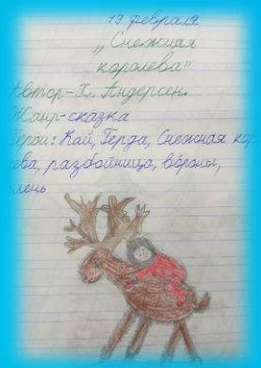 19 февраля
"Снежная
королева"
Автор-Х. Андерсен.
Жанр-сказка
Герои: Кай, Герда, Снежная кор
ева, разбойница, вороны,
лень